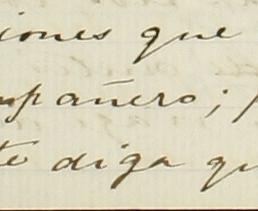 iones que
mpañero;
te diga qu